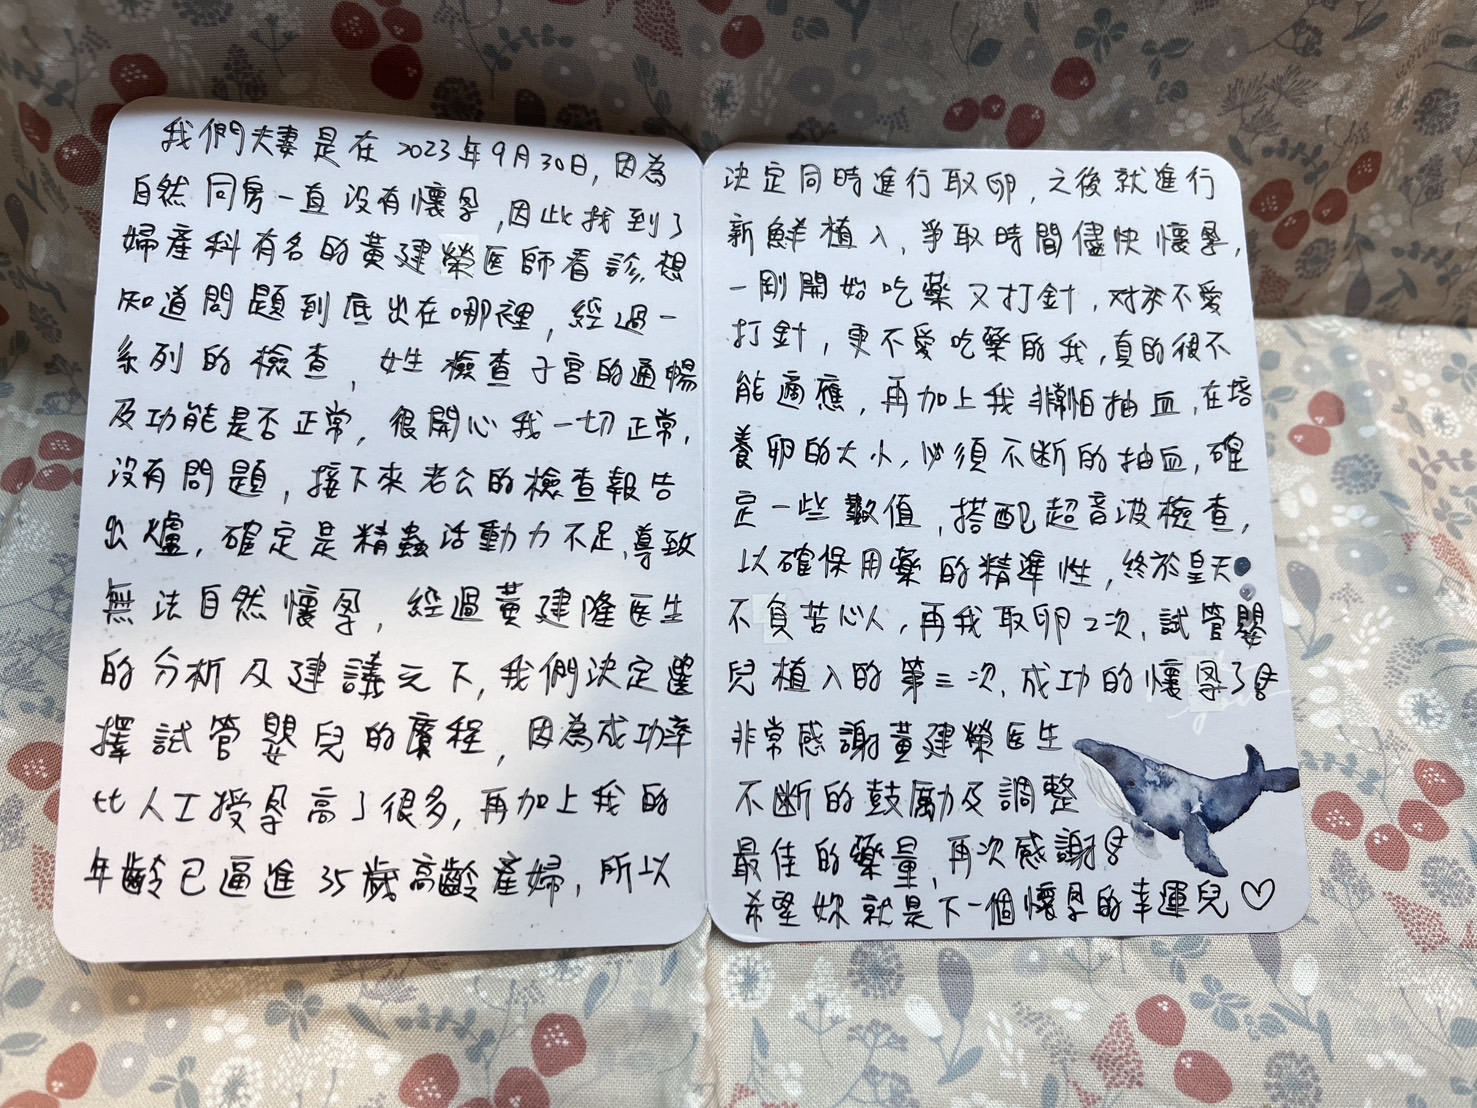 我們夫妻是在2023年9月30日,因為
自然同房一直沒有懷孕,因此找到了
婦產科有名的黃建榮医師看診,想
知道問題到底出在哪裡,經過一
系列的檢查,女生檢查子宮的通暢
及功能是否正常,很開心我一切正常,
沒有問題,接下來老公的檢查報告
出爐,確定是精蟲活動力不足,導致
無法自然懷孕,經過黃建隆医生
的分析及建議之下,我們決定選
擇試管嬰兒的療程,因為成功率
比人工授孕高了很多,再加上我的
年齡已逼進35歲高齡產婦,所以
決定同時進行取卵,之後就進行
新鮮植入,爭取時間儘快懷孕,
一剛開始吃藥又打針,对於不愛
打針,更不愛吃藥的我,真的很不
能適應,再加上我非常怕抽血,在培
養卵的大小,必須不斷的抽血,確
定一些數值,搭配超音波檢查,
以確保用藥的精準性,終於皇天
不負苦心人,再我取卵2次,試管嬰
兒植入的第三次,成功的懷孕了
非常感謝黃建榮医生
不斷的鼓勵及調整
最佳的藥量,再次感謝
希望妳就是下一個懷孕的幸運兒♡